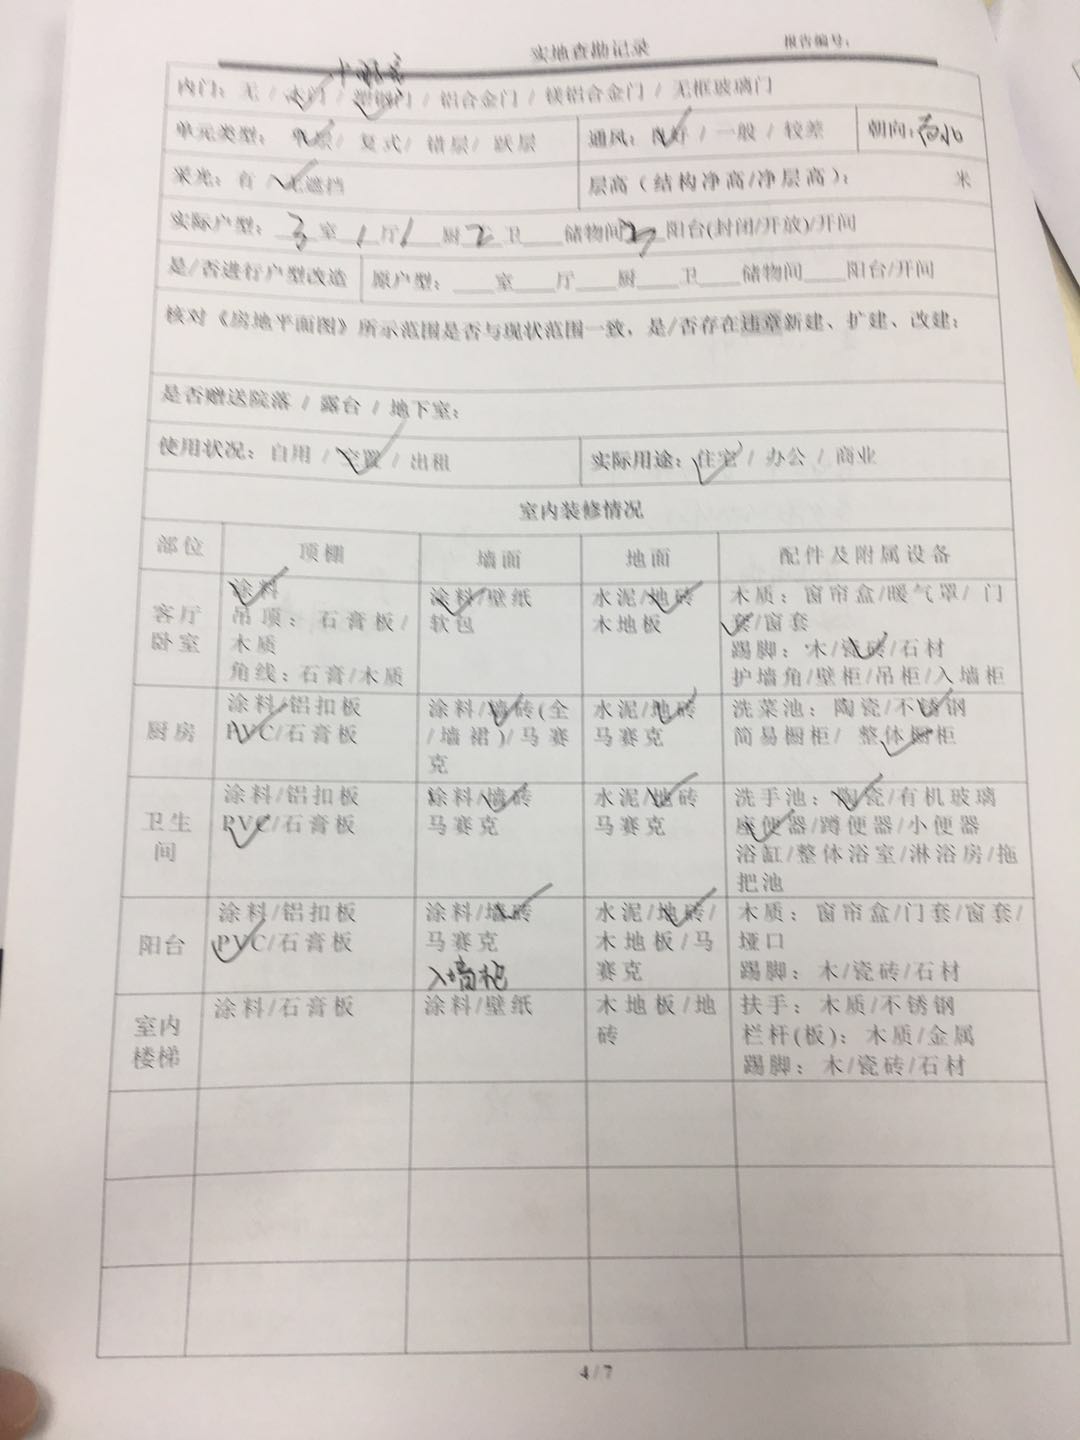 实地查勘记录
报告编号：
内门：无 / 木门 / 塑钢门 / 铝合金门 / 镁铝合金门 / 无框玻璃门
单元类型：单层/ 复式/ 错层/ 跃层 通风：良好 / 一般 / 较差 朝向：南北
采光：有 / 无遮挡 层高（结构净高/净层高）： 米
实际户型：3室1厅1厨2卫___储物间3阳台(封闭/开放)/开间
是/否进行户型改造 原户型：___室___厅___厨___卫___储物间___阳台/开间
核对《房地平面图》所示范围是否与现状范围一致，是/否存在违章新建、扩建、改建：
是否赠送院落 / 露台 / 地下室：
使用状况：自用 / 空置 / 出租 实际用途：住宅 / 办公 / 商业
室内装修情况
部位 顶棚 墙面 地面 配件及附属设备
客厅
卧室
涂料
吊顶：石膏板/
木质
角线：石膏/木质
涂料/壁纸
软包
水泥/地砖
木地板
木质：窗帘盒/暖气罩/ 门
套/窗套
踢脚：木/瓷砖/石材
护墙角/壁柜/吊柜/入墙柜
厨房
涂料/铝扣板
PVC/石膏板
涂料/墙砖(全
/墙裙)/马赛
克
水泥/地砖
马赛克
洗菜池：陶瓷/不锈钢
简易橱柜/ 整体橱柜
卫生
间
涂料/铝扣板
PVC/石膏板
涂料/墙砖
马赛克
水泥/地砖
马赛克
洗手池：陶瓷/有机玻璃
座便器/蹲便器/小便器
浴缸/整体浴室/淋浴房/拖
把池
阳台
涂料/铝扣板
PVC/石膏板
涂料/墙砖
马赛克
入墙柜
水泥/地砖/
木地板/马
赛克
木质：窗帘盒/门套/窗套/
垭口
踢脚：木/瓷砖/石材
室内
楼梯
涂料/石膏板
涂料/壁纸
木地板/地
砖
扶手：木质/不锈钢
栏杆(板)：木质/金属
踢脚：木/瓷砖/石材
4 / 7